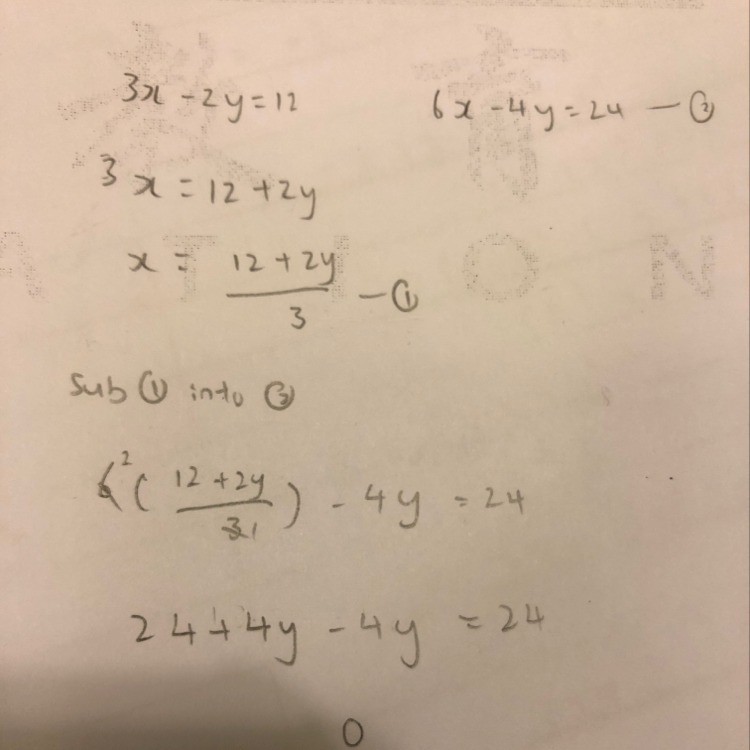 3x - 2y = 12
6x - 4y = 24 — ②
3x = 12 + 2y
x = (12 + 2y)/3 — ①
Sub ① into ②
6̸² ((12 + 2y)/3̸1) - 4y = 24
24 + 4y - 4y = 24
0
教 育
A T I O N